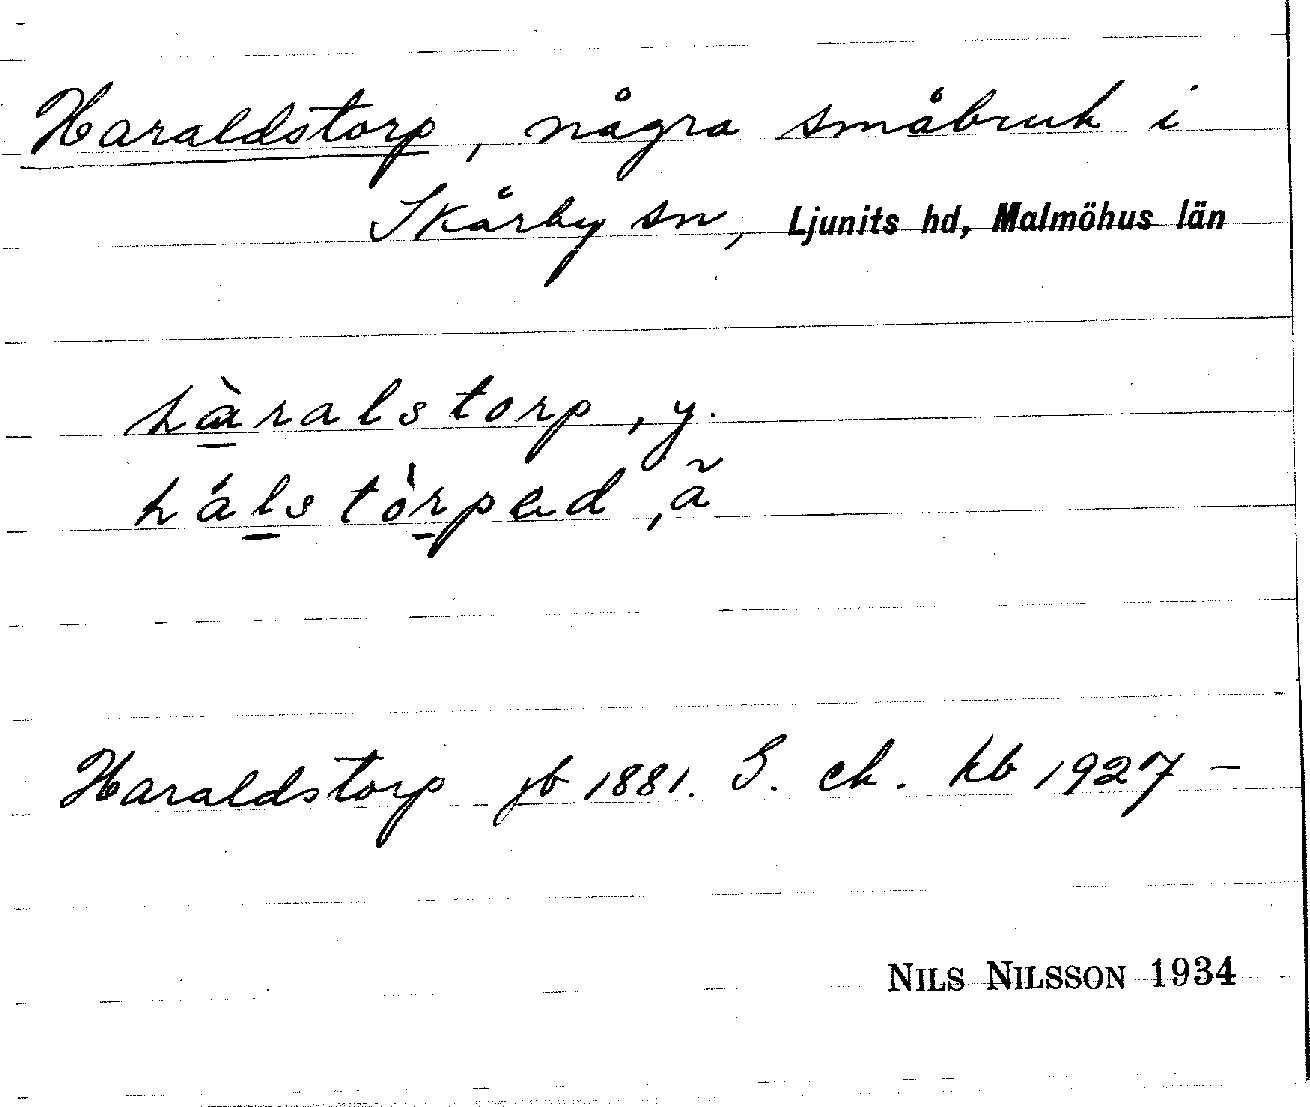 Haraldstorp, några småbruk i
Skårby sn, Ljunits hd, Malmöhus län
hàralstorp, y.
hálstòrped, ã
Haraldstorp jb 1881. G. ek. kb 1927 –
NILS NILSSON 1934